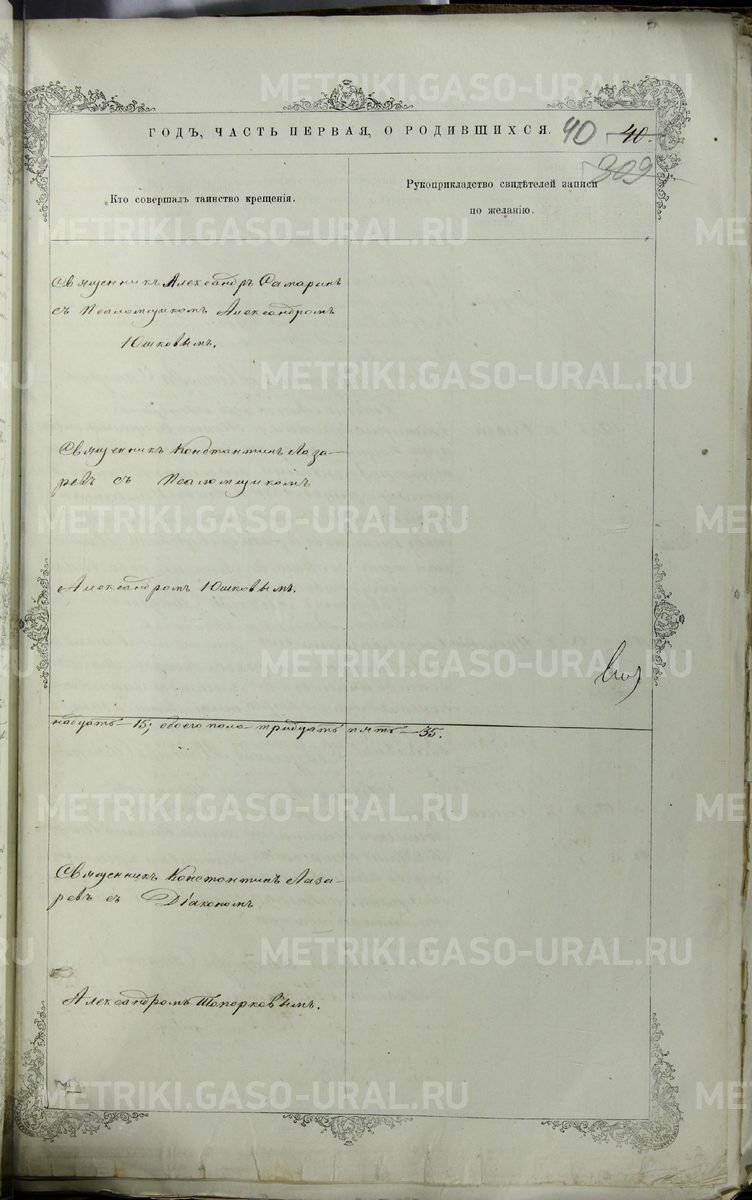 METRIKI.GASO-URAL.RU
ГОДЪ, ЧАСТЬ ПЕРВАЯ, О РОДИВШИХСЯ. 40 40.
309
Кто совершалъ таинство крещенія.
Рукоприкладство свидѣтелей записи
по желанію.
Священникъ Александръ Самаринъ
съ Псаломщикомъ Александромъ
Юшковымъ.
Священникъ Константинъ Лаза-
ревъ съ Псаломщикомъ
Александромъ Юшковымъ.
надцать – 15; обоего пола – тридцать пять – 35.
Священникъ Константинъ Лаза-
ревъ съ Діакономъ
Александромъ Топорковымъ.